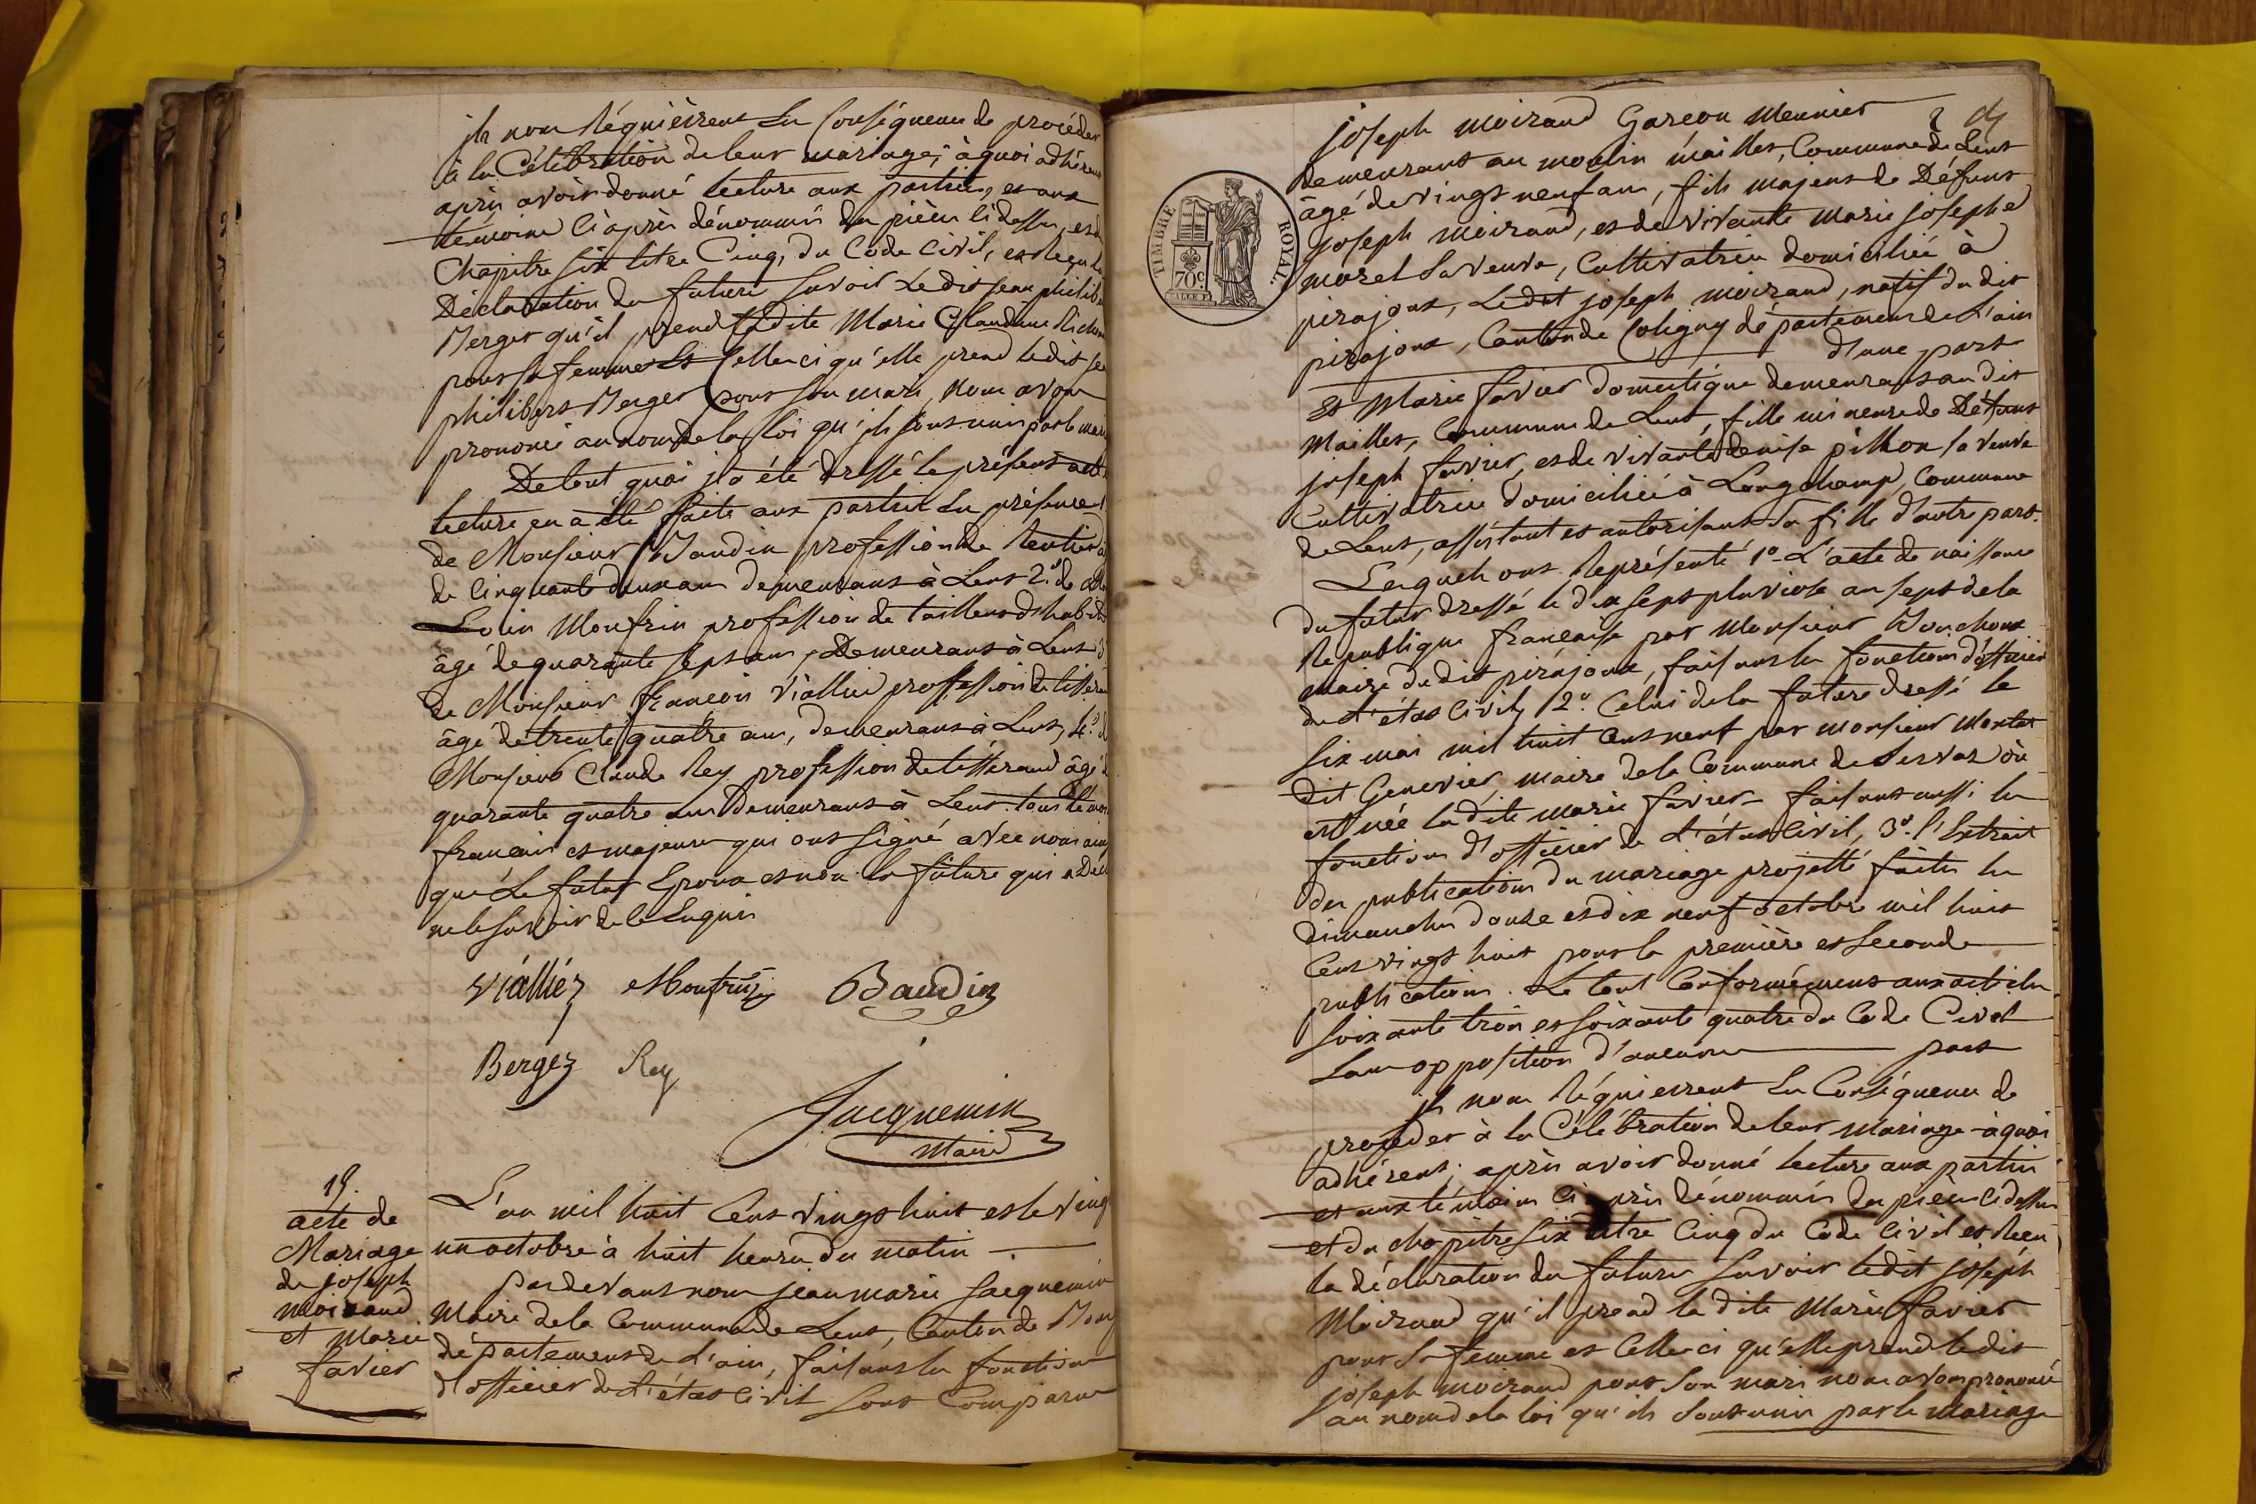 ils nous Réquièrent En Conséquence de procéder
à la Célébration de leur mariage, à quoi adhérent
après avoir donné lecture aux parties, et aux
témoins Ci après dénommés des pièces ci dessus, et du
Chapitre Six titre Cinq, du Code Civil, et Reçu la
Déclaration des futurs Savoir Ledit jean philibert
Berger qu'il prend ladite Marie Claudine
pour sa femme Et Celle-ci qu'elle prend ledit jean
philibert Berger pour Son mari, Nous avons
prononcé au nom de la Loi qu'ils sont unis par le mariage
De tout quoi il a été dressé le présent acte
lecture en a été faite aux parties En présence 1°
de Monsieur Baudin profession de Rentier âgé
de Cinquante deux ans demeurant à Lent 2° de
Louis Monfrin profession de tailleur d'habits
âgé de quarante Sept ans, Demeurant à Lent 3°
de Monsieur françois Viallier profession de tisserand
âgé de trente quatre ans, demeurant à Lent, 4° de
Monsieur Claude Rey profession de tisserand âgé de
quarante quatre ans Demeurant à Lent. tous témoins
français et majeurs qui ont Signé avec nous ainsi
que Le futur Epoux et non la future qui a Déclaré
ne le Savoir de ce Enquis
Viallier Monfrin Baudin
Berger Rey
Jacquemin
Maire
19.
acte de
Mariage
de joseph
moiraud
et Marie
favier
L'an mil huit Cent vingt huit et le Vingt
un octobre à huit heures du matin
par devant nous jean marie Jacquemin
Maire de la Commune de Lent, Canton de Bourg
département de L'ain, faisant les fonctions
d'officier de L'état Civil Sont Comparus
joseph moiraud Garcon Meunier
demeurant au moulin mailles, Commune de Lent
âgé de vingt neuf ans, fils majeur de Défunt
joseph moiraud, et de vivante marie josephe
morel Sa veuve, Cultivatrice domiciliée à
pirajoux, Ledit joseph moiraud, natif du dit
pirajoux, Canton de Coligny département de L'ain
d'une part
Et Marie favier domestique demeurant au dit
Mailles, Commune de Lent, fille mineure de Défunt
joseph favier, et de vivante denise pillion sa veuve
Cultivatrice domiciliée à Longchamp, Commune
de Lent, assistant et autorisant Sa fille d'autre part.
Lesquels ont Représenté 1° L'acte de naissance
du futur dressé le dix Sept pluviose an Sept de la
Republique française par Monsieur Bouchoux
maire du dit pirajoux, faisant les fonctions d'officier
de L'état Civil, 2° Celui de la future dressé le
Six mai mil huit Cent neuf par monsieur
dit Genevier, maire de la Commune de Servas où
est née ladite marie favier faisant aussi les
fonctions d'officier de L'état Civil, 3° l'Extrait
des publications du mariage projetté faites les
dimanches douze et dix neuf octobre mil huit
Cent vingt huit pour la première et Seconde
publications. Le tout Conformément aux articles
Soixante trois et Soixante quatre du Code Civil
Sans opposition d'aucune part
ils nous Réquierrent En Conséquence de
procéder à la Célébration de leur Mariage à quoi
adhérent; après avoir donné lecture aux parties
et aux témoins Ci après dénommés des pièces ci dessus
et du chapitre Six titre Cinq du Code Civil et Reçu
la déclaration des futurs Savoir ledit joseph
Moiraud qu'il prend la dite Marie favier
pour Sa femme et Celle-ci qu'elle prend ledit
joseph moiraud pour Son mari nous avons prononcé
au nom de la loi qu'ils Sont unis par le mariage
TIMBRE ROYAL.
70 c.